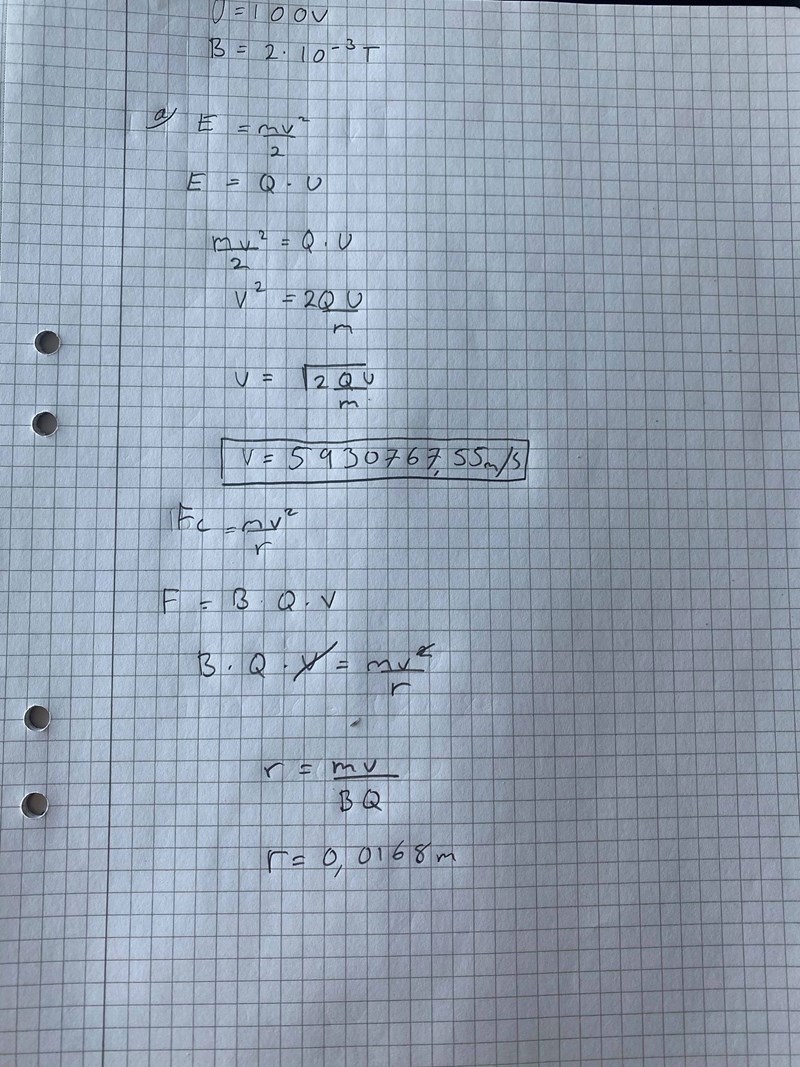 U=100V
B = 2·10⁻³T
a) E = mv²/2
E = Q·U
mv²/2 = Q.U
v² = 2QU/m
v = √2QU/m
v = 5930767,55m/s
Fc = mv²/r
F = B·Q·v
B·Q·v = mv²/r
r = mv/BQ
r = 0,0168m